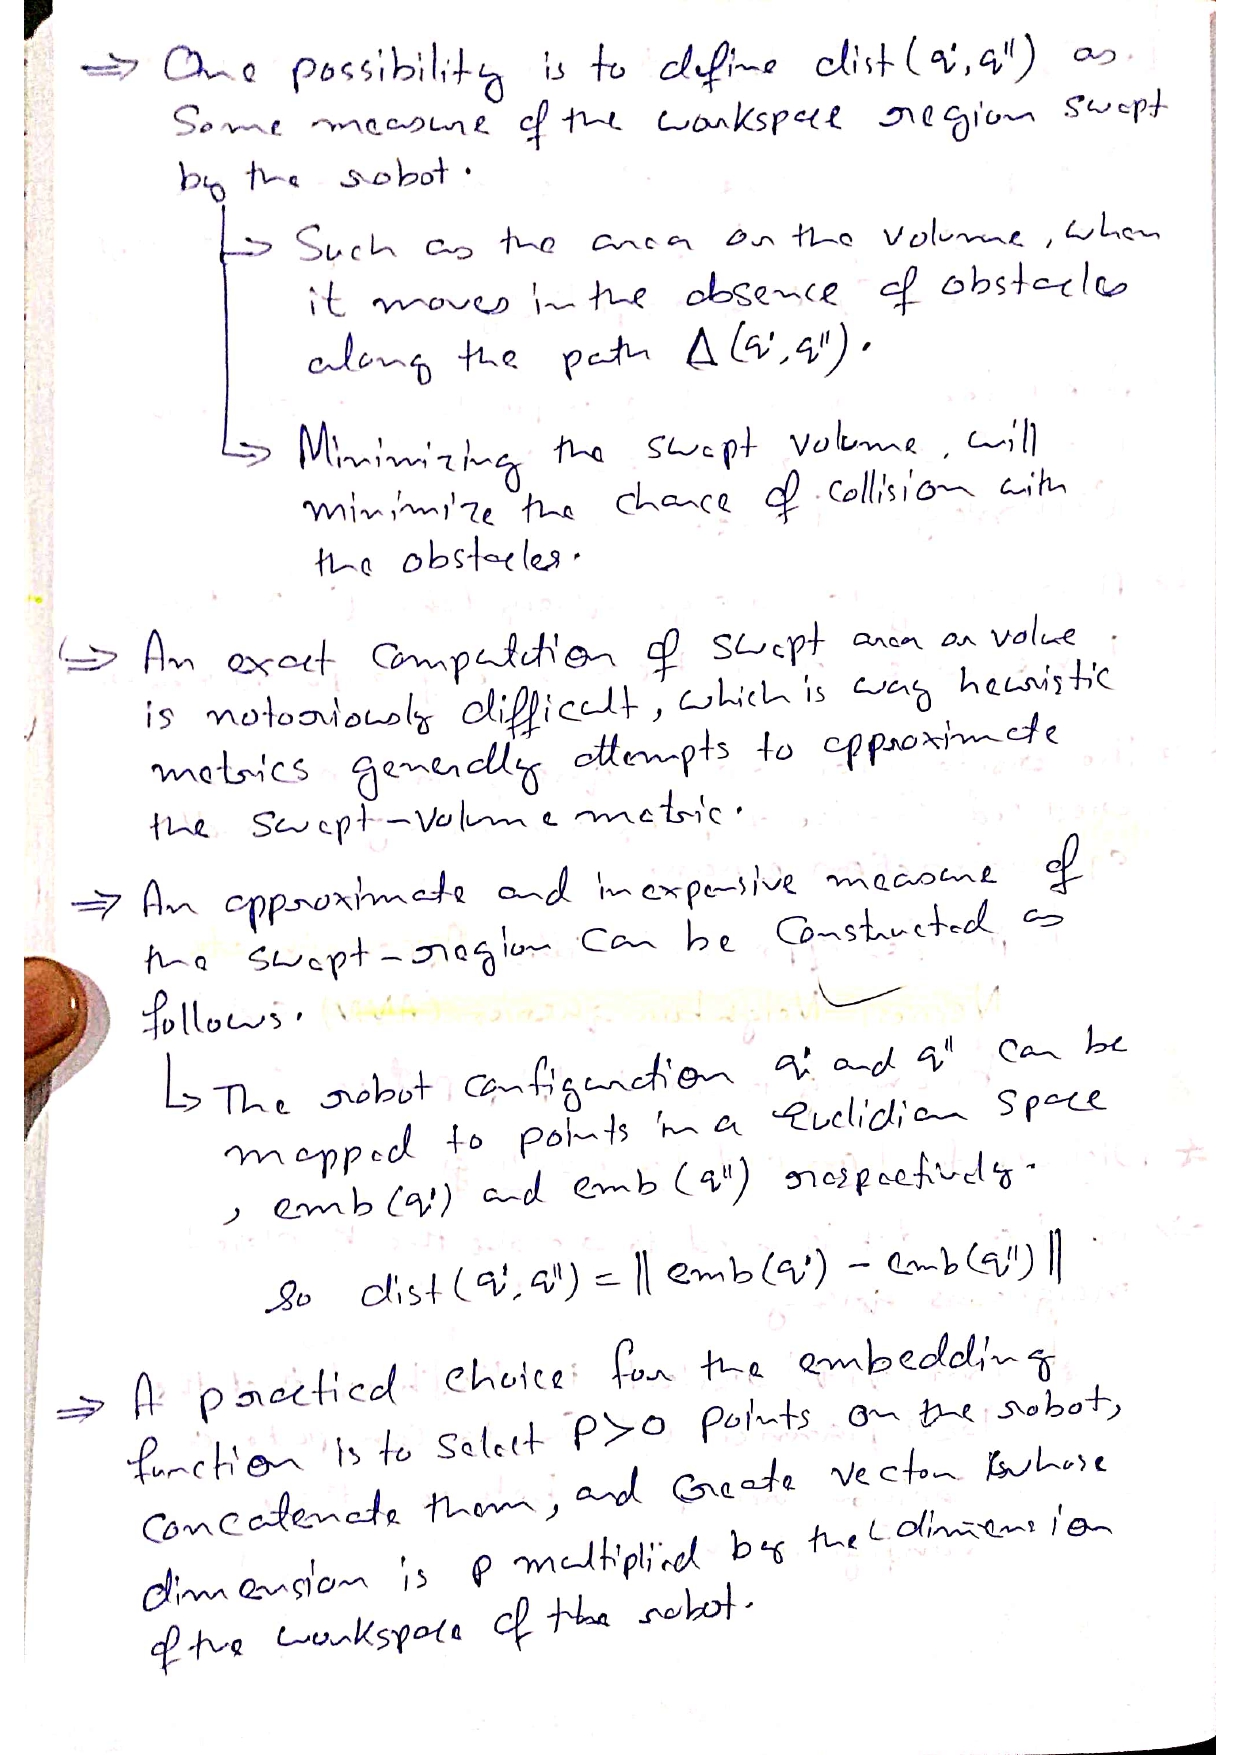 ⇒ One possibility is to define dist(q', q'') as
Some measure of the workspace region swept
by the robot.
↳ Such as the area or the volume, when
it moves in the absence of obstacles
along the path Δ(q', q'').
↳ Minimizing the swept volume, will
minimize the chance of collision with
the obstacles.
↳ An exact computation of swept area or volue
is notoriously difficult, which is way heuristic
metrics generally attempts to approximate
the swept-volume metric.
⇒ An approximate and inexpensive measure of
the swept-region can be constructed as
follows.
↳ The robot configuration q' and q'' can be
mapped to points in a Euclidian space
, emb(q') and emb(q'') respectively.
So dist(q', q'') = || emb(q') - emb(q'') ||
⇒ A practical choice for the embedding
function is to select P>0 points on the robot,
concatenate them, and create vector whose
dimension is p multiplied by the dimension
of the workspace of the robot.